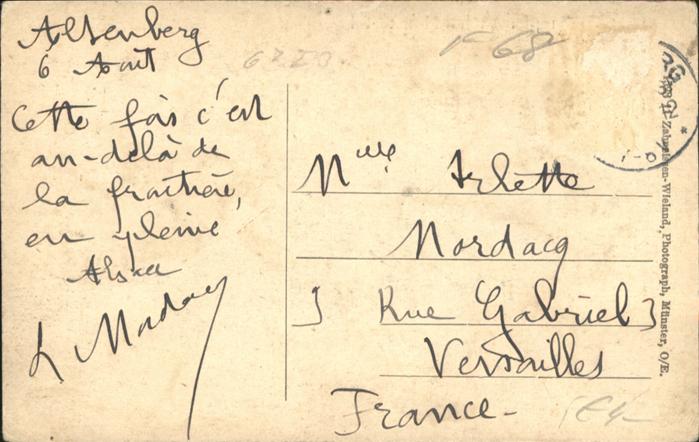 Altenberg
6 Aout
Cette fois c'est
au-delà de
la frontière,
en pleine
Alsace
H Mordacq
6220
1F 68
Mlle Arlette
Mordacq
3 Rue Gabriel 3
Versailles
France-
Wieland, Photograph, Münster, O/E.